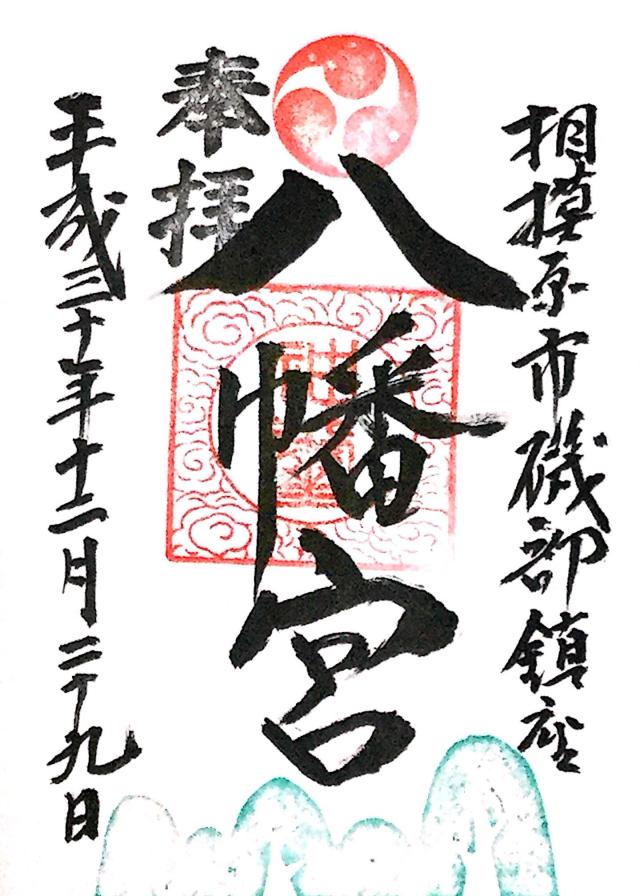 相模原市磯部鎮座
八幡宮
奉拝
平成三十年十二月二十九日